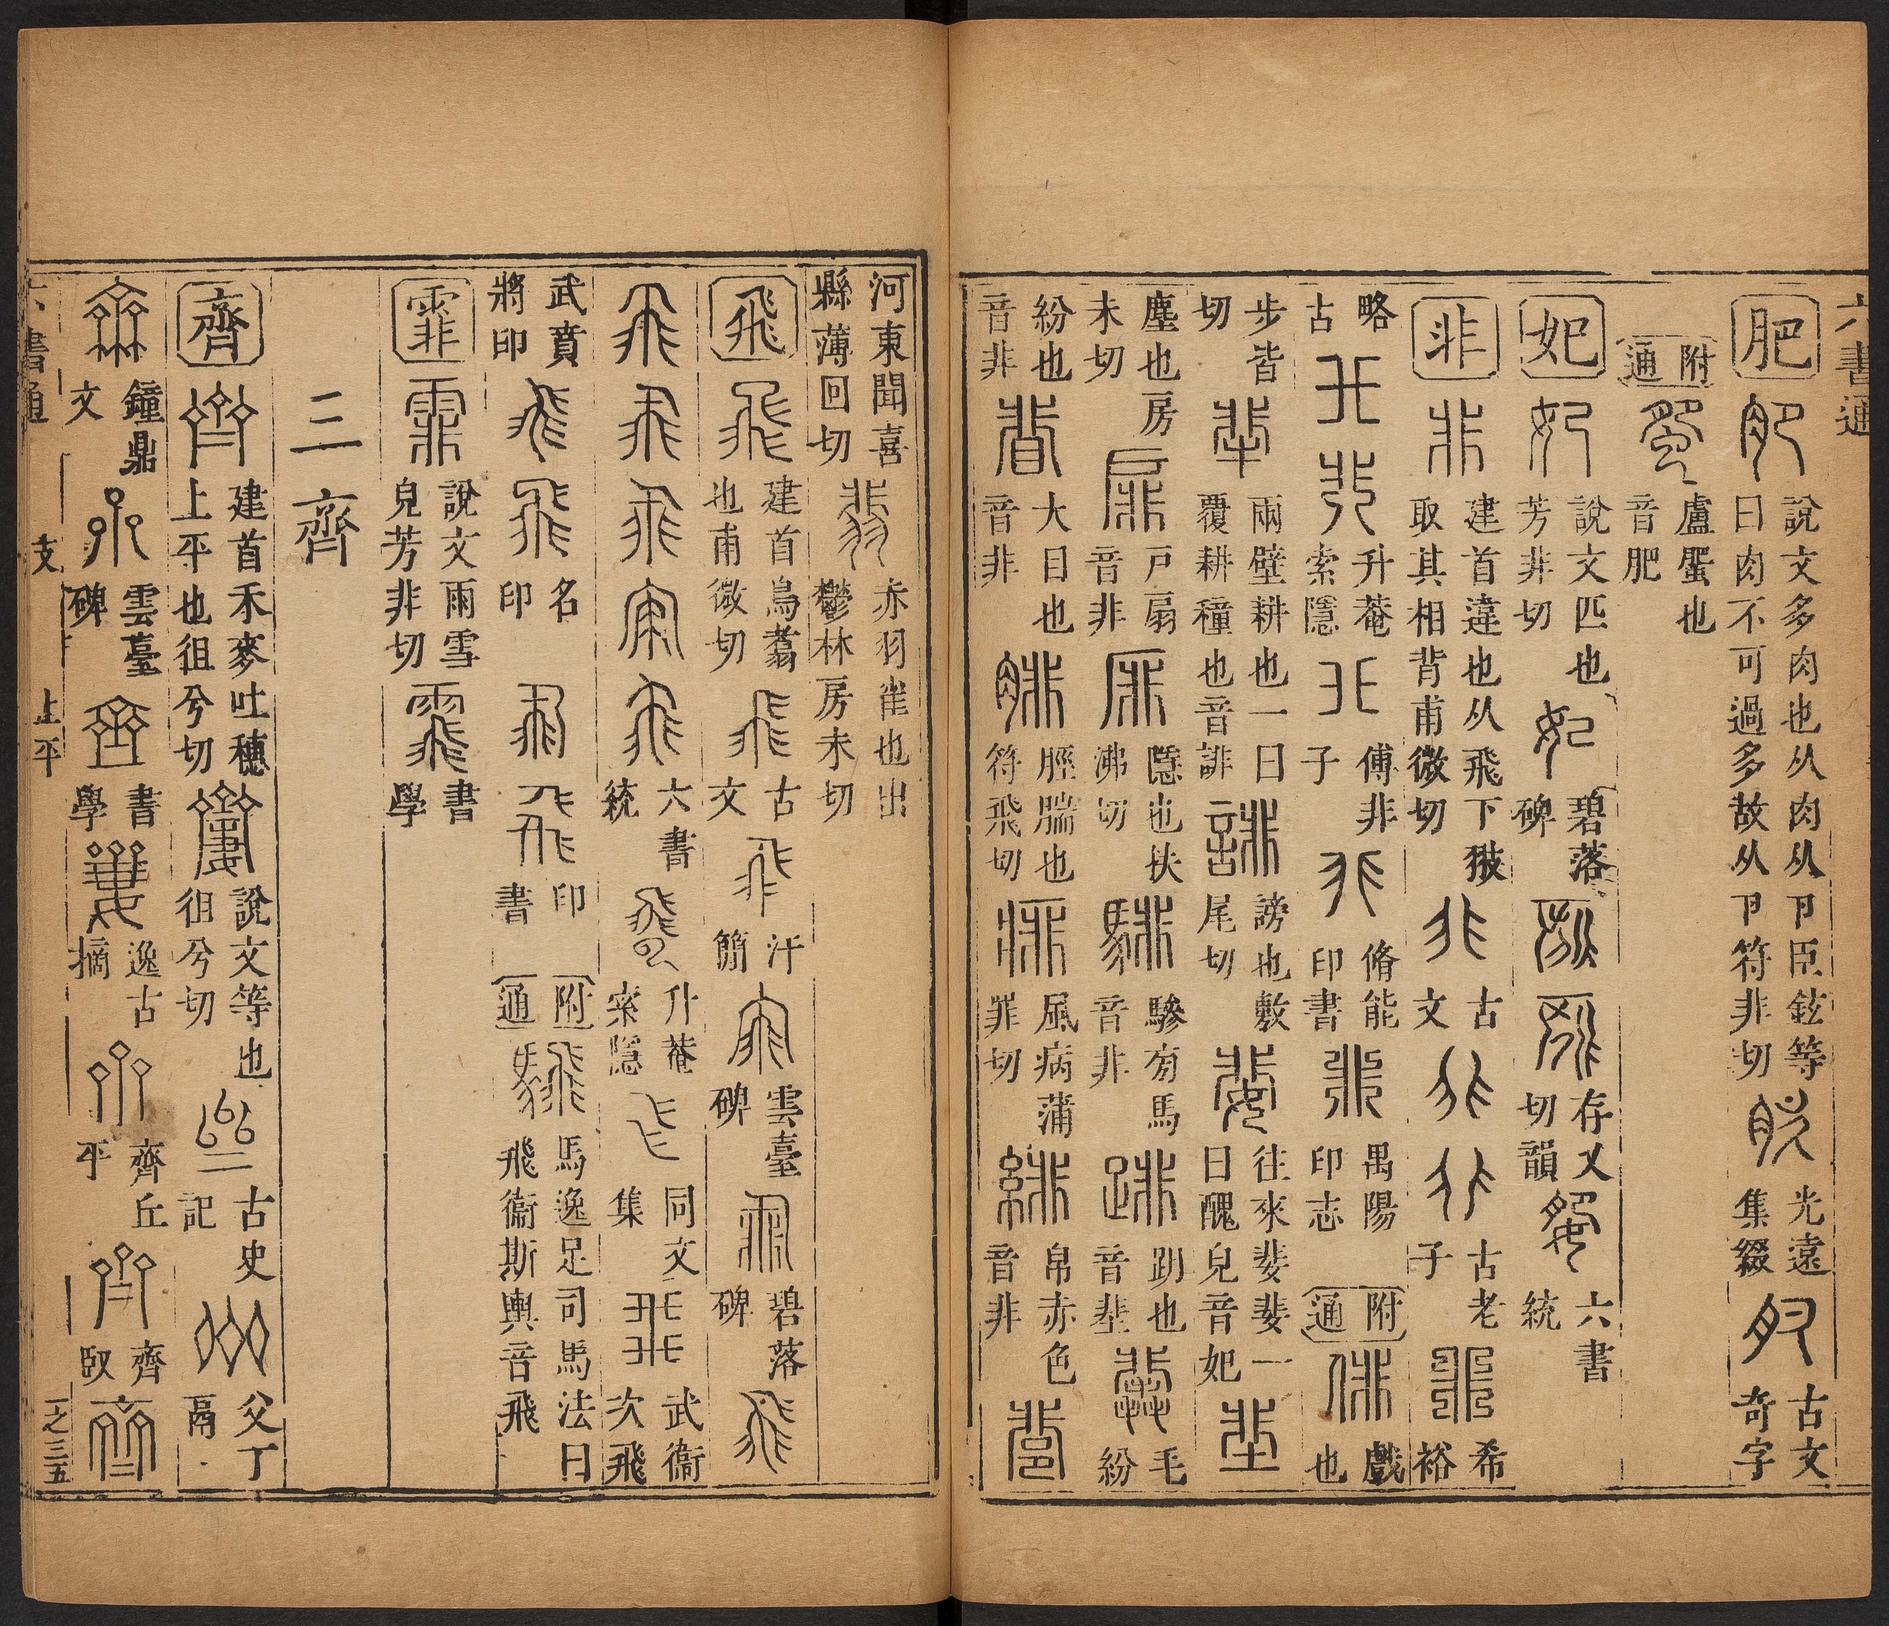 六書通
肥 說文多肉也从肉从卩臣鉉等曰肉不可過多故从卩符非切 光遠集綴 古文奇字
附通 盧蜰也音肥
妃 說文匹也芳非切 碧落碑 存乂切韻 六書統
非 建首違也从飛下翄取其相背甫微切 古文 古老子 希裕
略古 升菴索隱 傅非子 脩能印書 禺陽印志 附通 戲也
步皆切 兩壁耕也一曰覆耕種也音誹 謗也敷尾切 往來婓婓一曰醜皃音妃
塵也房未切 戶扇音非 隱也扶沸切 驂旁馬音非 跀也音剕 毛紛
紛也音非 大目也音非 脛腨也符飛切 風病蒲罪切 帛赤色音非
河東聞喜縣薄回切 赤羽雀也出鬱林房未切
飛 建首鳥翥也甫微切 古文 汗簡 雲臺碑 碧落碑
六書統 升菴索隱 同文集 武衞次飛
武賁將印 名印 印書 附通 馬逸足司馬法曰飛衞斯輿音飛
霏 說文雨雪皃芳非切 書學
三 齊
齊 建首禾麥吐穗上平也徂兮切 說文等也徂兮切 古史記 父丁鬲
鐘鼎文 雲臺碑 書學 逸古摘 齊丘平 齊馭
六書通 支 上平 一之三五